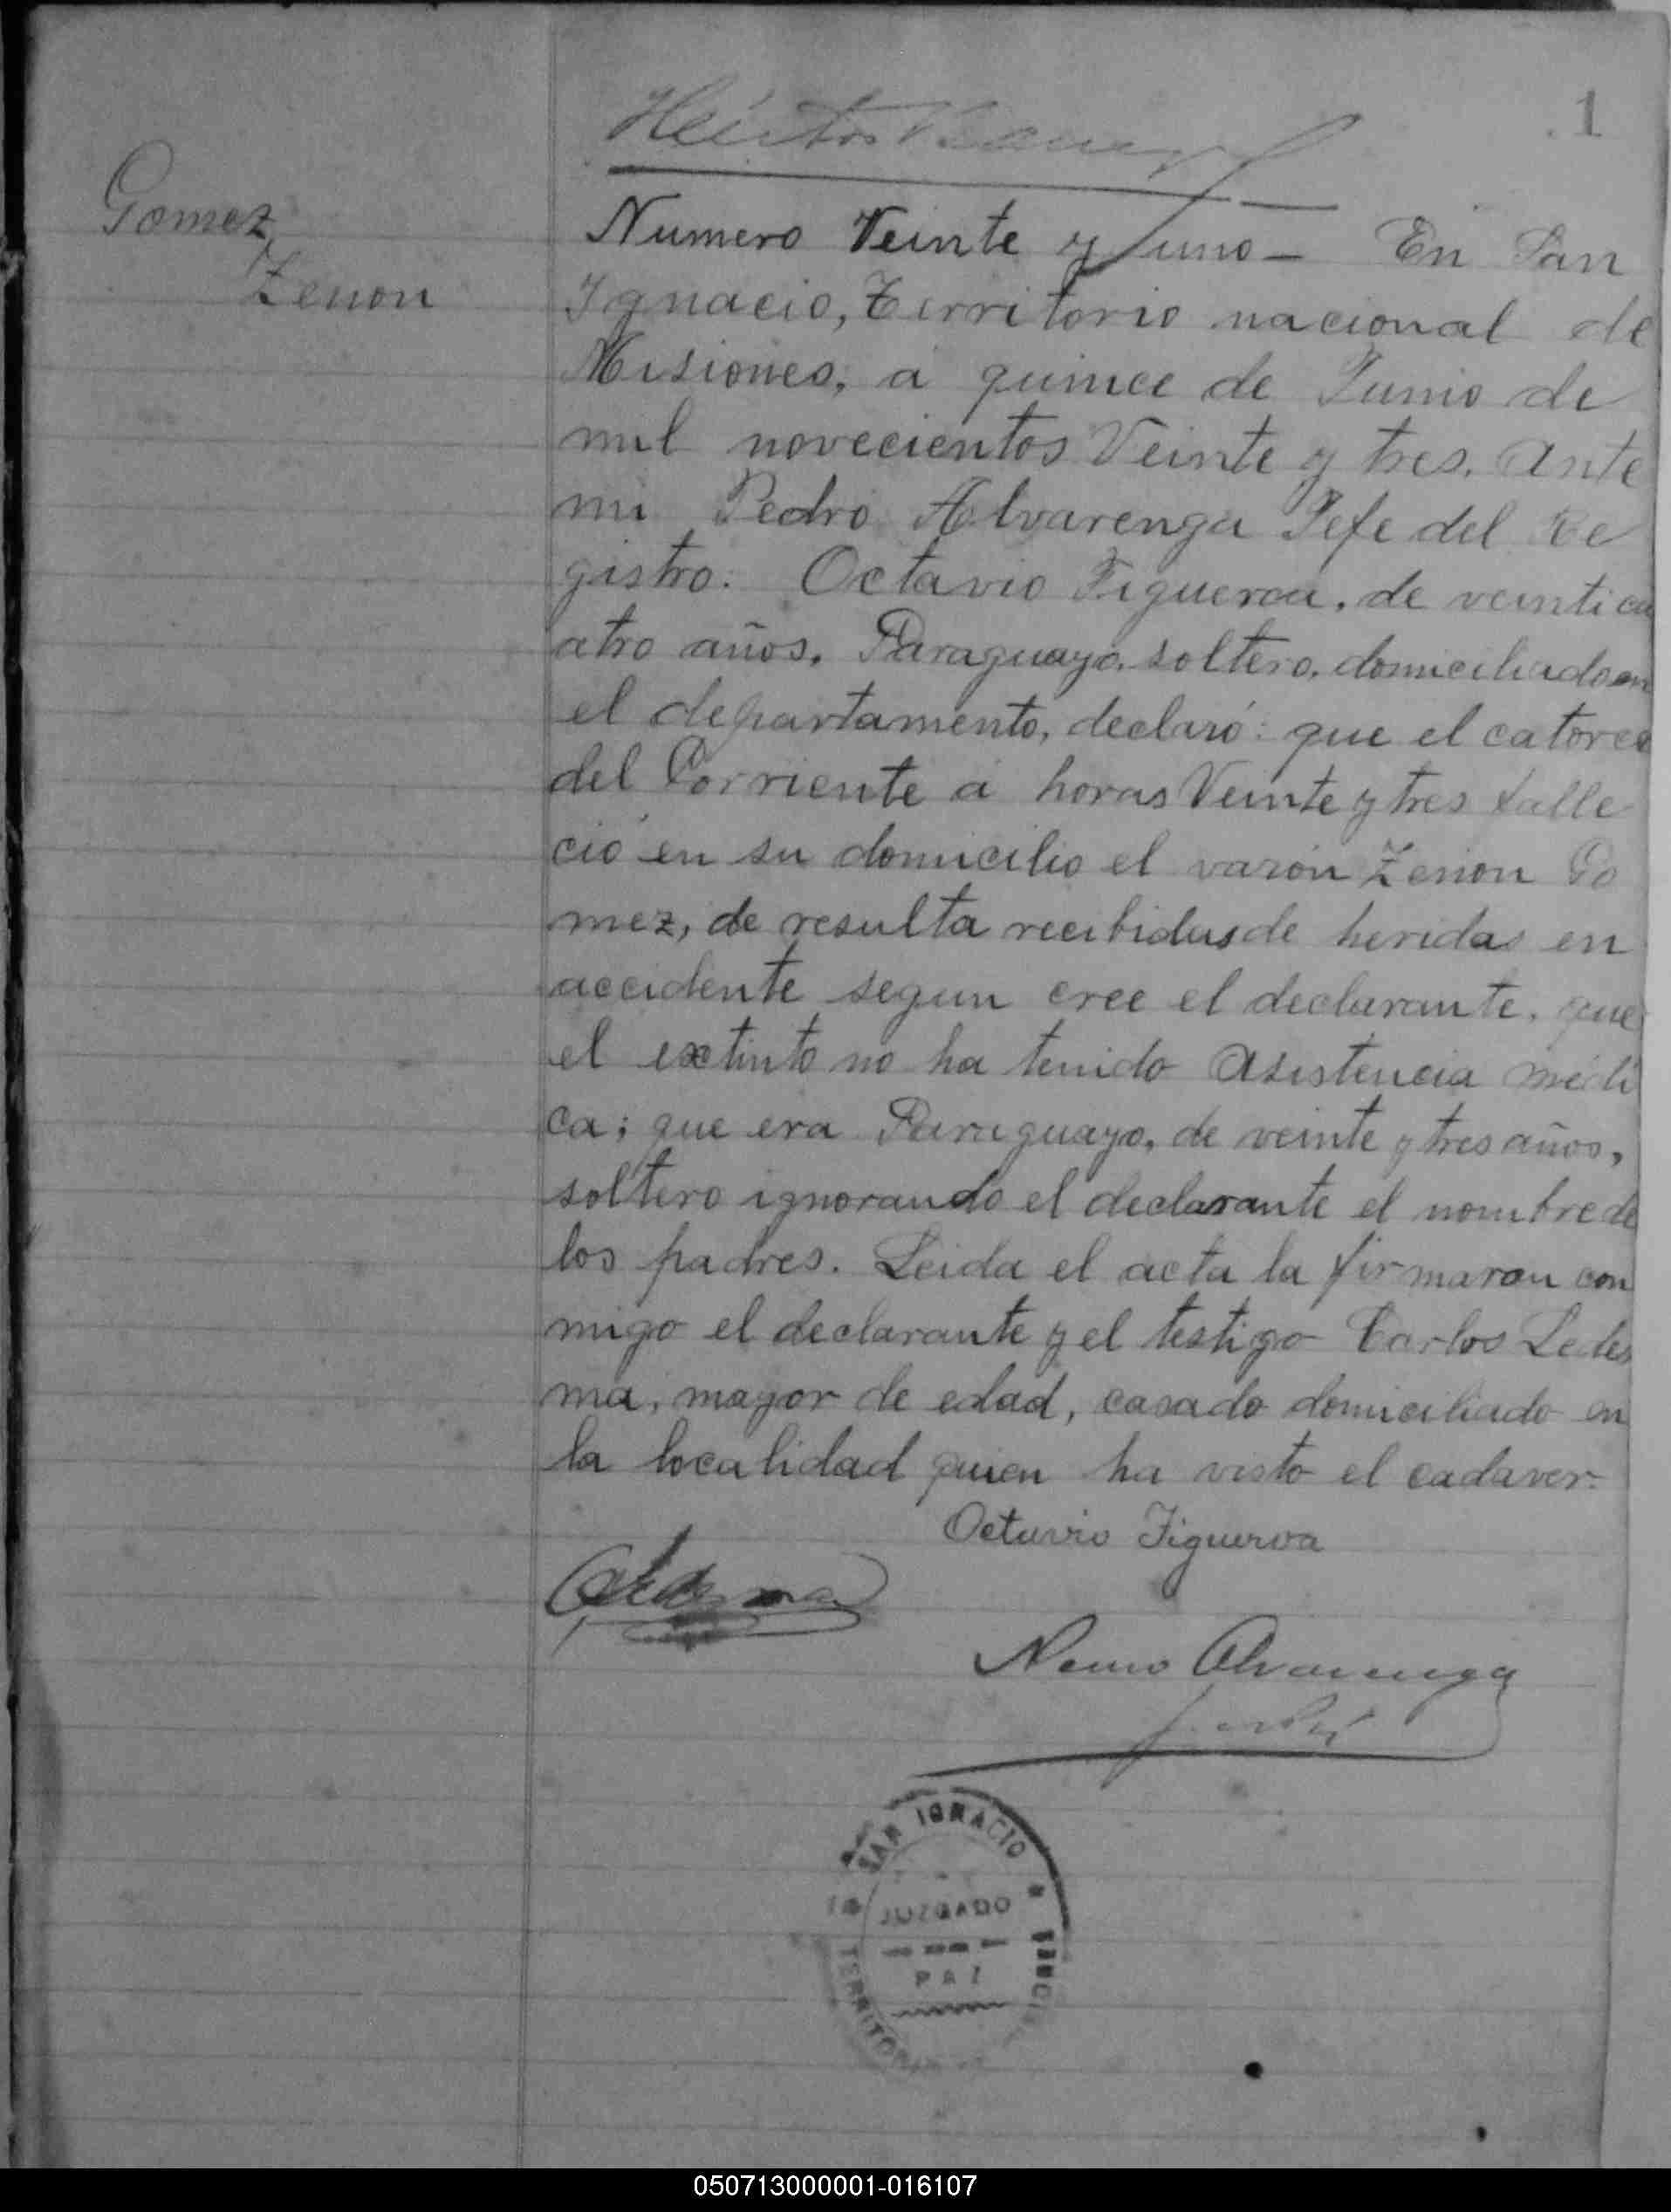 1
Gomez,
Zenon
Numero Veinte y uno — En San
Ignacio, Territorio nacional de
Misiones, a quince de Junio de
mil novecientos Veinte y tres. Ante
mi Pedro Alvarenga Jefe del Re
gistro. Octavio Figueroa, de veinticu
atro años, Paraguayo, soltero, domiciliado en
el departamento, declaró: que el catorce
del Corriente a horas Veinte y tres falle
ció en su domicilio el varón Zenon Go
mez, de resulta recibidas de heridas en
accidente segun cree el declarante, que
el extinto no ha tenido Asistencia médi
ca; que era Paraguayo, de veinte y tres años,
soltero ignorando el declarante el nombre de
los padres. Leida el acta la firmaron con
migo el declarante y el testigo Carlos Ledes
ma, mayor de edad, casado domiciliado en
la localidad quien ha visto el cadaver.
Octavio Figueroa
CLedesma
Alvarenga
SAN IGNACIO
JUZGADO
PAZ
TERRITORIO
050713000001-016107